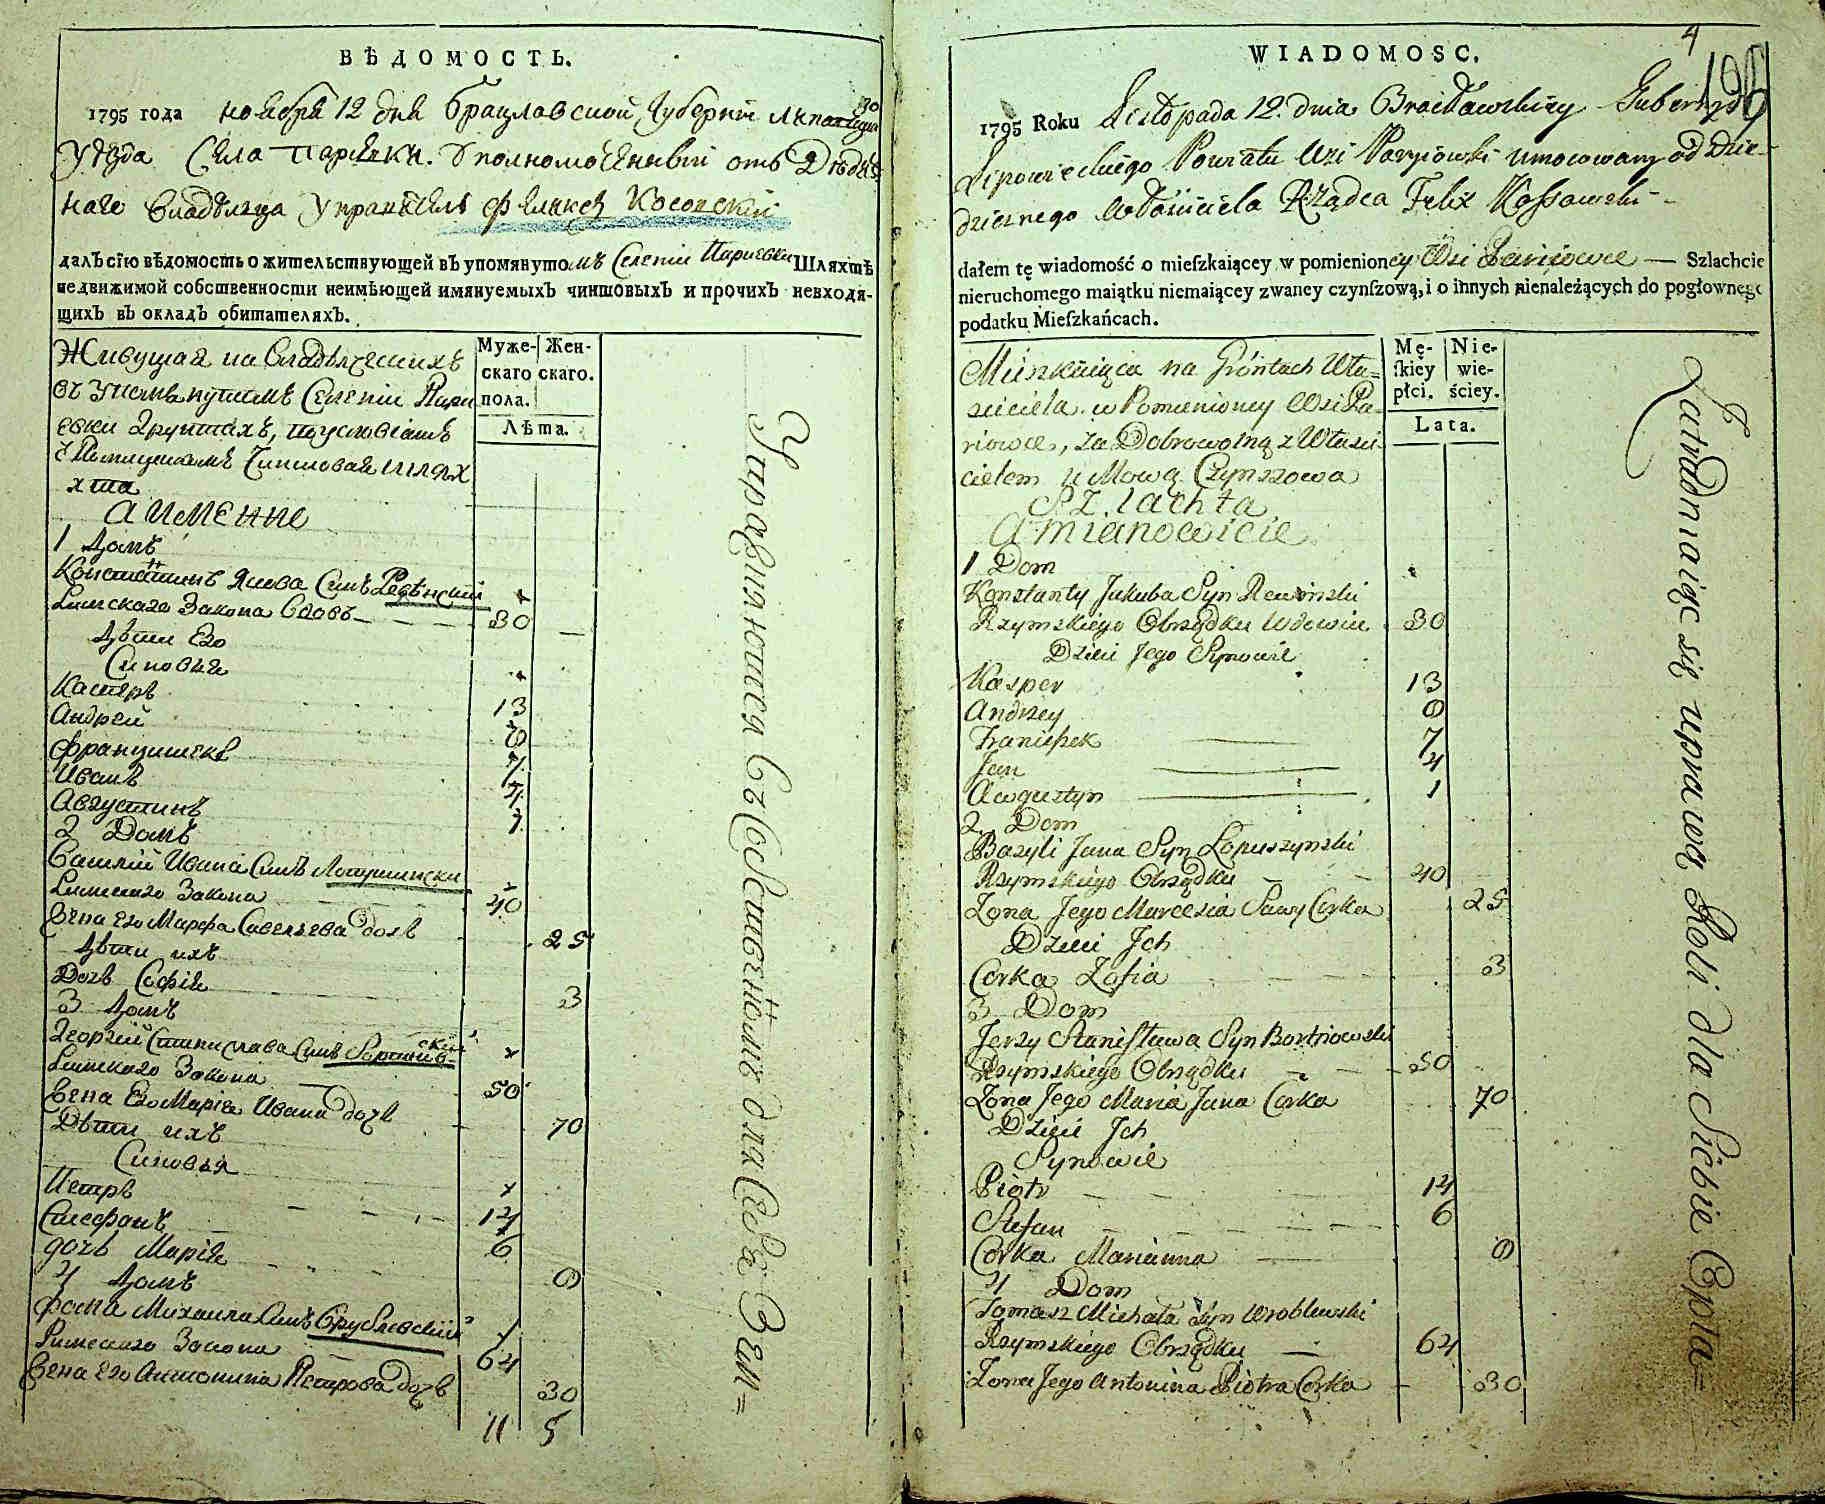 ВѢДОМОСТЬ.
1795 года ноября 12 дня Брацлавской Губернїи
уезда Села Париевки. Уполномоченный отъ
владѣльца Управитель Феликсъ Косовский
далъ сїю вѣдомость о жительствующей въ упомянутомъ Селении Париевки Шляхтѣ
недвижимой собственности неимѣющей имянуемыхъ чиншовыхъ и прочихъ невходя-
щихъ въ окладъ обитателяхъ.
Муже- Жен-
скаго скаго.
пола.
Лѣта.
Живущая на Владѣлческихъ
въ упомянутомъ Селении Пари
евки грунтахъ, по условїамъ
с Помещикомъ Чиншовая шлях
хта
А ИМЕННО
1 Домъ
Константинъ Якова Синъ
Римскаго Закона Вдовъ 30
Дѣти Его
Синовья
Каспръ 13
Андрей 8
Францишекъ 7
Иванъ 4
Августинъ 1
2 Домъ
Василий Ивана Синъ Лопушински
Римскаго Закона 40
Жена Его Марфа Савельева Дочь 25
Дѣти ихъ
Дочь Софїя 3
3 Домъ
Георгий Станислава Синъ
Римскаго Закона 50
Жена Его Марїя Ивана дочь 70
Дѣти ихъ
Синовья
Петръ 14
Стефанъ 6
дочь Марїя 8
4 Домъ
Фома Михаила Синъ Врублевский
Римскаго Закона 64
Жена Его Антонина Петрова дочь 30
11 5
Управляющися Собственною для Себя Зем=
4
WIADOMOSC.
1795 Roku Listopada 12. dnia Bracławskiey Gubernyi
Lipowieckiego Powiatu Wsi Paryiowki umocowany od Dzie-
dzicznego Właściciela Rządca Felix Kossowski
dałem tę wiadomość o mieſzkaiącey w pomienioney Wsi Pariiowce — Szlachcie
nieruchomego maiątku niemaiącey zwaney czynſzową, i o innych nienależących do pogłownego
podatku Mieſzkańcach.
Mę- Nie-
ſkiey wie-
płci. ściey.
Lata.
Mieszkaiąca na Grontach Wła=
sciciela w Pomienioney Wsi Pa-
riowce, za Dobrowolną z Właści
cielem uMową Czynszowa
Szlachta
Amianowicie
1 Dom
Konstanty Jakuba Syn Rewinski
Rzymskiego Obrządku Wdowiec 30
Dzieci Jego Synowie
Kasper 13
Andrzey 8
Franciszek 7
Jan 4
Augustyn 1
2 Dom
Bazyli Jana Syn Łopuszynski
Rzymskiego Obrządku 40
Zona Jego Marcesia Sawy Corka 25
Dzieci Ich
Corka Zofia 3
3 Dom
Jerzy Stanisława Syn Bortnowski
Rzymskiego Obrządku 50
Zona Jego Maria Jana Corka 70
Dzieci Ich
Synowie
Piotr 14
Stefan 6
Corka Marianna 8
4 Dom
Tomasz Michała Syn Wroblewski
Rzymskiego Obrządku 64
Zona Jego Antonina Piotra Corka 30
Zatrudniaiąc się uprawą Roli dla Siebie